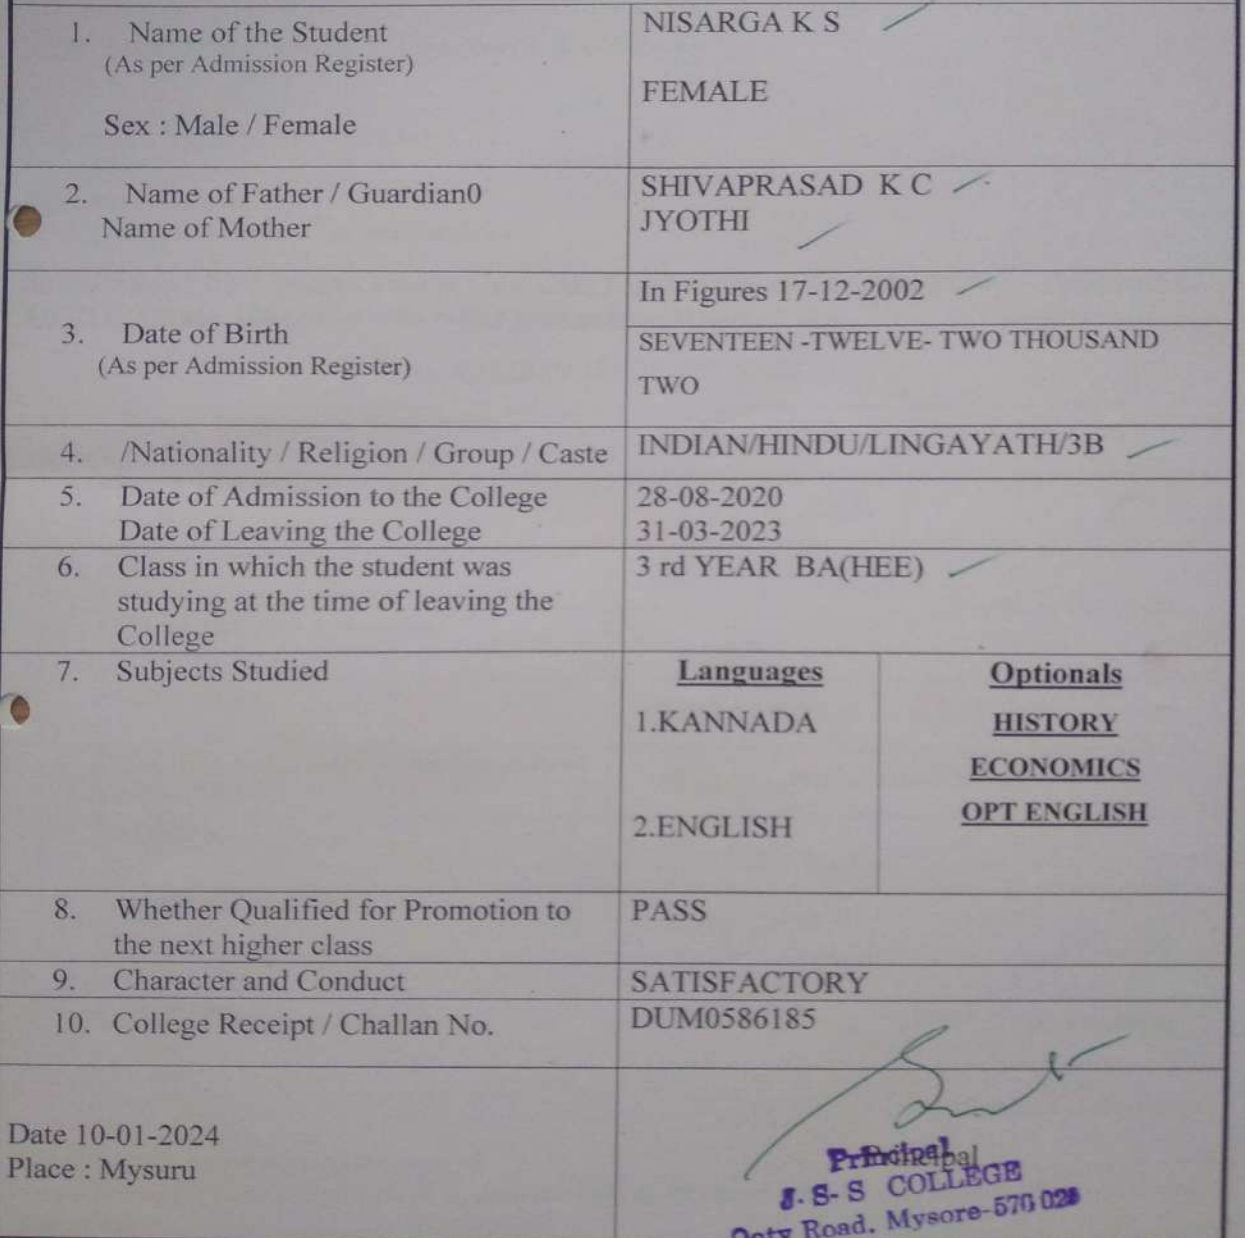 1. Name of the Student
(As per Admission Register)
Sex : Male / Female
NISARGA K S
FEMALE
2. Name of Father / Guardian0
Name of Mother
SHIVAPRASAD K C
JYOTHI
3. Date of Birth
(As per Admission Register)
In Figures 17-12-2002
SEVENTEEN -TWELVE- TWO THOUSAND
TWO
4. /Nationality / Religion / Group / Caste
INDIAN/HINDU/LINGAYATH/3B
5. Date of Admission to the College
Date of Leaving the College
28-08-2020
31-03-2023
6. Class in which the student was
studying at the time of leaving the
College
3 rd YEAR BA(HEE)
7. Subjects Studied
Languages
1.KANNADA
2.ENGLISH
Optionals
HISTORY
ECONOMICS
OPT ENGLISH
8. Whether Qualified for Promotion to
the next higher class
PASS
9. Character and Conduct
SATISFACTORY
10. College Receipt / Challan No.
DUM0586185
Date 10-01-2024
Place : Mysuru
Principal
Principal
J. S- S COLLEGE
Ooty Road, Mysore-570 025